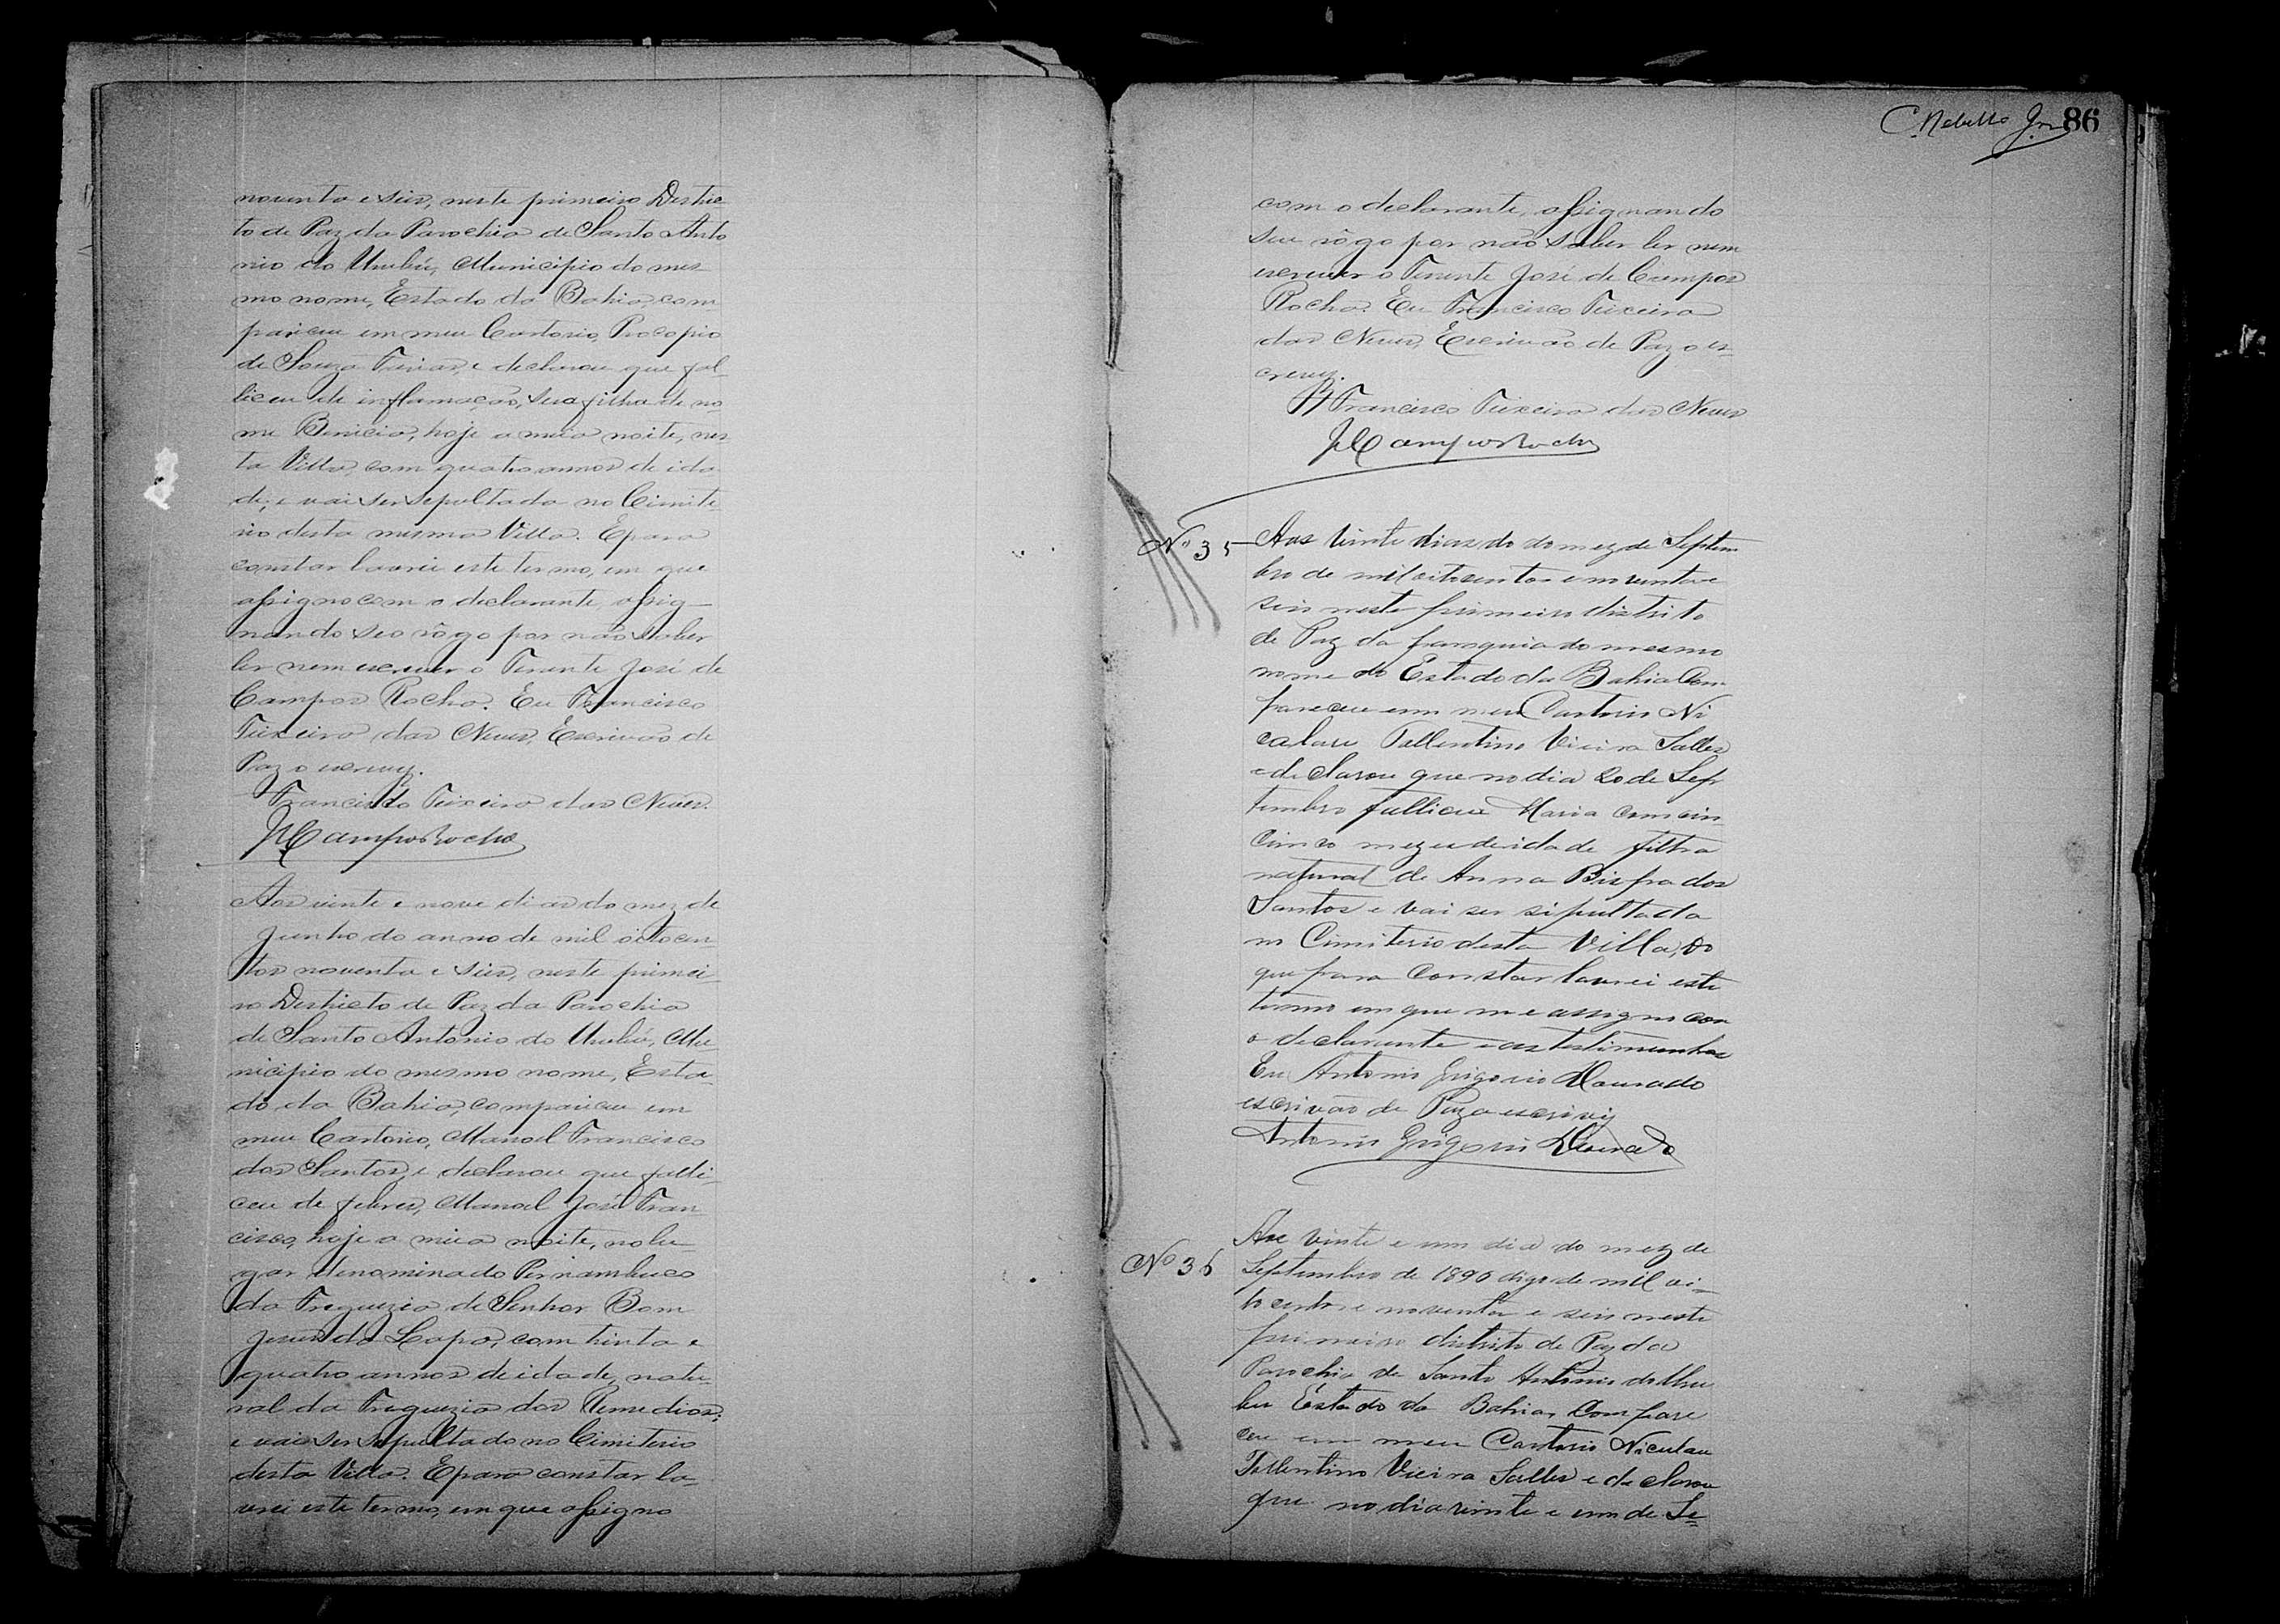 noventa e seis, neste primeiro Distric
to de Paz da Parochia de Santo Anto
nio do Urubú, Municipio do mes
mo nome, Estado da Bahia, com
pareceu em meu Cartorio, Procopio
de Souza Farias, e declarou que fal
liceu de inflamação, sua filha de no
me Benicia, hoje a meia noite, nes
ta Villa, com quatro annos de ida
de, e vai ser sepultada no Cimite
rio desta mesma Villa. E para
constar lavrei este termo, em que
assigno com o declarante, assig
nando seo rôgo por não saber
ler nem escrever o Tenente José de
Campos Rocha. Eu Francisco
Teixeira das Neves, Escrivão de
Paz o escrevy.
Francisco Teixeira das Neves.
JCamposRocha
Aos vinte e nove dias do mez de
Junho do anno de mil oitocen
tos noventa e seis, neste primei
ro Districto de Paz da Parochia
de Santo Antonio do Urubú, Mu
nicipio do mesmo nome, Esta
do da Bahia, compareceu em
meu Cartorio, Manoel Francisco
dos Santos, e declarou que falli
ceu de febres, Manoel José Fran
cisco, hoje a meia noite, no lu
gar denominado Pernambuco
da Freguezia de Senhor Bom
Jesus da Lapa, com trinta e
quatro annos de idade, natu
ral da Freguezia dos Remedios;
e vai ser sepultado no Cimiterio
desta Villa. E para constar la
vrei este termo, em que assigno
C. Rebello Jor 86
com o declarante, assignando
seu rôgo por não saber ler nem
escrever o Tenente José de Campos
Rocha. Eu Francisco Teixeira
das Neves, Escrivão de Paz o es
crevy.
Francisco Teixeira das Neves
JCamposRocha
No 35 Aos vinte dias do do mez de Septem
bro de mil oitocentos e noventa e
seis neste primeiro distrito
de Paz da paroquia do mesmo
nome do Estado da Bahia Com
pareceu em meu Cartorio Ni
calau Tallentino Vieira Salles
e declarou que no dia 20 de Sep
tembro falliceu Maria com cin
cinco mezes de idade filha
natural de Anna Bispa dos
Santos e vai ser sipultada
no Cimiterio desta Villa, do
que para constar lavrei este
termo em que me assigno com
o declarante e as testimunhas
Eu Antonio Grigorio Dourado
escrivão de Paz o escrivy
Antonio Grigorio Dourado
No 36 Aos vinte e um dia do mez de
Septembro de 1890 digo de mil oi
tocentos e noventa e seis neste
primeiro distrito de Paz da
Parochia de Santo Antonio do Uru
bu Estado da Bahia, Compare
ceu em meu Cartorio Niculau
Tallentino Vieira Salles e declarou
que no dia vinte e um de Se